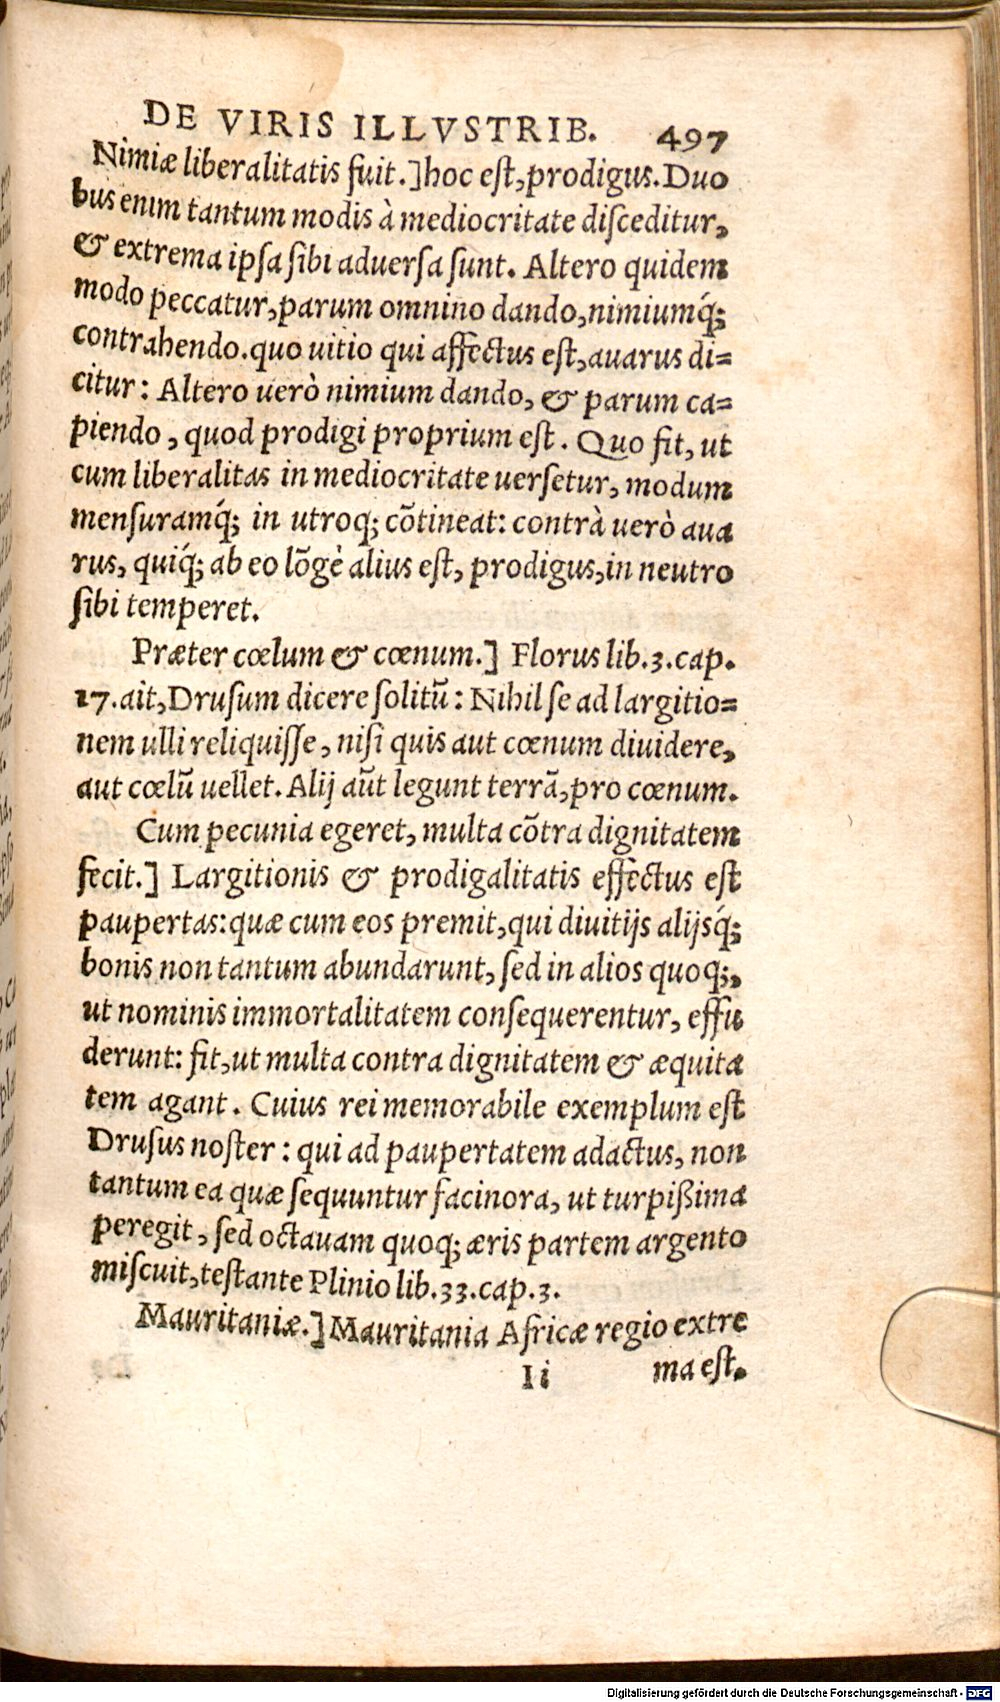 DE VIRIS ILLVSTRIB. 497
Nimiæ liberalitatis fuit.]hoc eſt,prodigus.Duo
bus enim tantum modis à mediocritate diſceditur,
& extrema ipſa ſibi aduerſa ſunt. Altero quidem
modo peccatur,parum omnino dando,nimiumq́;
contrahendo.quo uitio qui affectus eſt,auarus di=
citur: Altero uerò nimium dando, & parum ca=
piendo, quod prodigi proprium eſt. Quo fit, ut
cum liberalitas in mediocritate uerſetur, modum
menſuramq́; in utroq; cõtineat: contrà uerò aua
rus, quiq́; ab eo lõgè alius eſt, prodigus,in neutro
ſibi temperet.
Præter cœlum & cœnum.] Florus lib.3.cap.
17.ait,Druſum dicere ſolitũ: Nihil ſe ad largitio=
nem ulli reliquiſſe, niſi quis aut cœnum diuidere,
aut cœlũ uellet. Alij aũt legunt terrã,pro cœnum.
Cum pecunia egeret, multa cõtra dignitatem
fecit.] Largitionis & prodigalitatis effectus eſt
paupertas:quæ cum eos premit,qui diuitijs alijsq́;
bonis non tantum abundarunt, ſed in alios quoq;,
ut nominis immortalitatem conſequerentur, effu
derunt: fit,ut multa contra dignitatem & æquita
tem agant. Cuius rei memorabile exemplum eſt
Druſus noſter: qui ad paupertatem adactus, non
tantum ea quæ ſequuntur facinora, ut turpißima
peregit, ſed octauam quoq; æris partem argento
miſcuit,teſtante Plinio lib.33.cap.3.
Mauritaniæ.]Mauritania Africæ regio extre
Ii ma eſt.
Digitalisierung gefördert durch die Deutsche Forschungsgemeinschaft - DFG